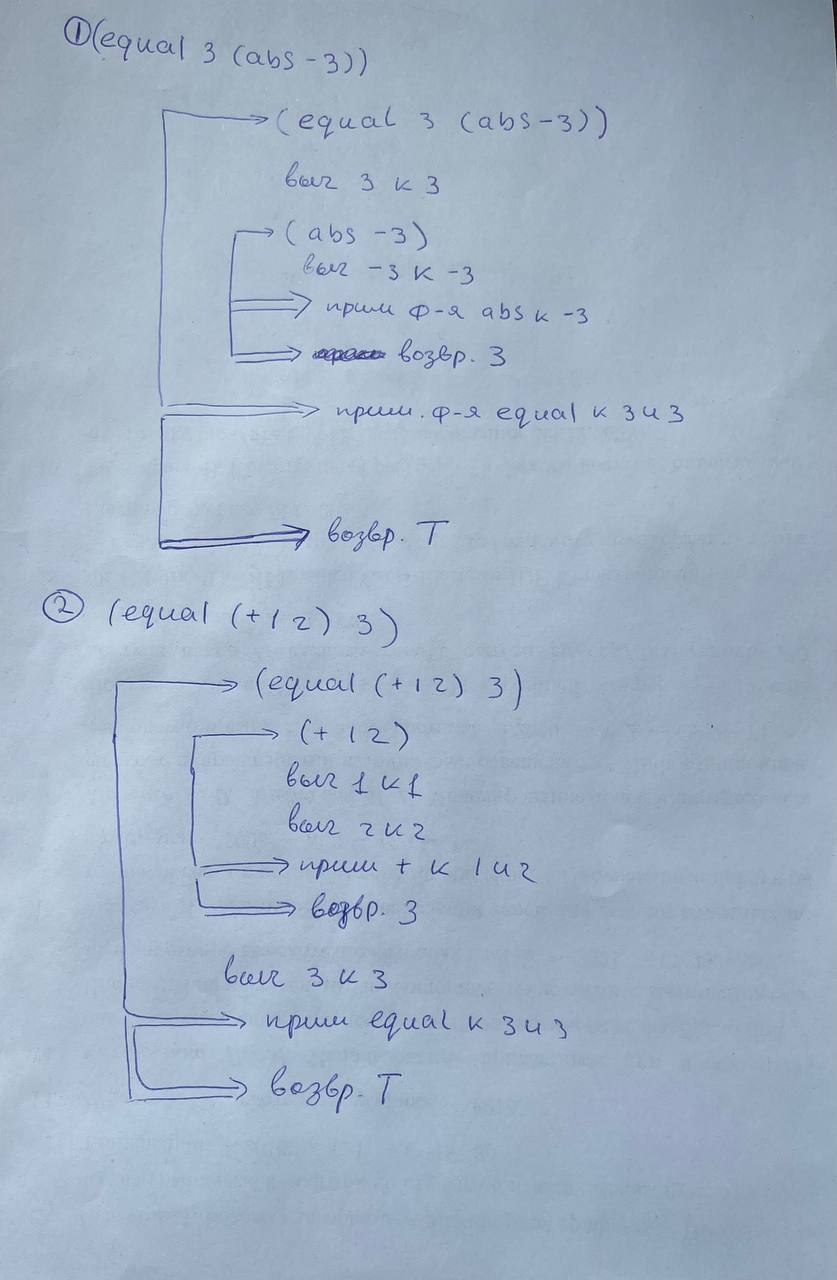 ① (equal 3 (abs -3))
(equal 3 (abs -3))
выч 3 к 3
(abs -3)
выч -3 к -3
прим ф-я abs к -3
возвр. 3
прим. ф-я equal к 3 и 3
возвр. T
② (equal (+ 1 2) 3)
(equal (+ 1 2) 3)
(+ 1 2)
выч 1 к 1
выч 2 к 2
прим + к 1 и 2
возвр. 3
выч 3 к 3
прим equal к 3 и 3
возвр. T